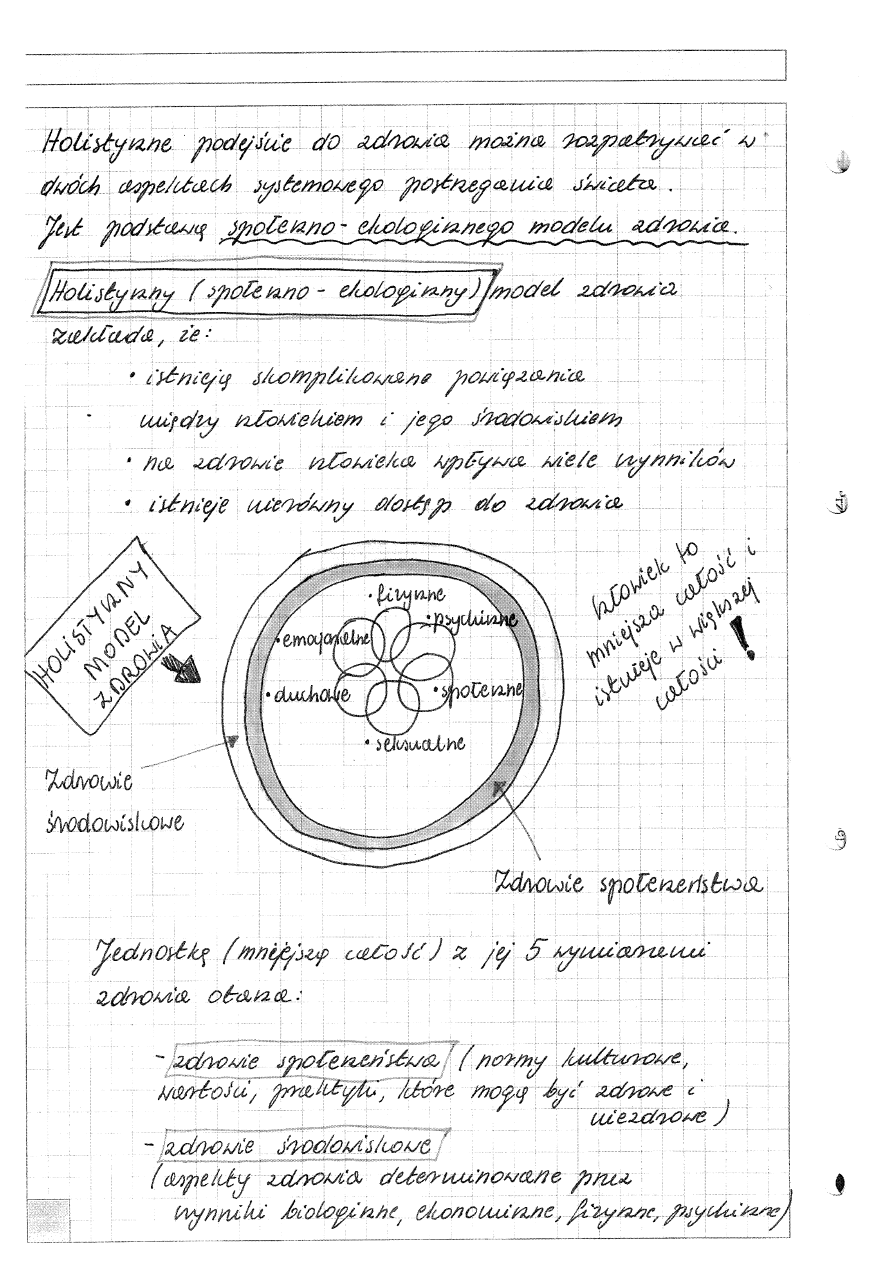 Holistyczne podejście do zdrowia można rozpatrywać w
dwóch aspektach systemowego postrzegania świata.
Jest podstawą społeczno-ekologicznego modelu zdrowia.
Holistyczny (społeczno - ekologiczny) model zdrowia
zakłada, że:
• istnieją skomplikowane powiązania
między człowiekiem i jego środowiskiem
• na zdrowie człowieka wpływa wiele czynników
• istnieje nierówny dostęp do zdrowia
HOLISTYCZNY
MODEL
ZDROWIA
• fizyczne
• psychiczne
• emocjonalne
• duchowe
• społeczne
• seksualne
człowiek to
mniejsza całość i
istnieje w większej
całości !
Zdrowie
środowiskowe
Zdrowie społeczeństwa
Jednostkę (mniejszą całość) z jej 5 wymiarami
zdrowia otacza:
- zdrowie społeczeństwa (normy kulturowe,
wartości, praktyki, które mogą być zdrowe i
niezdrowe)
- zdrowie środowiskowe
(aspekty zdrowia determinowane przez
czynniki biologiczne, ekonomiczne, fizyczne, psychiczne)